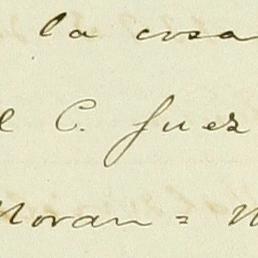 la cosa
l C. Juez
Moran =